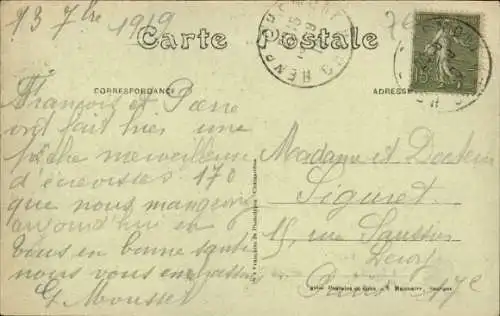 13 7bre 1919
Carte Postale
CORRESPONDANCE
ADRESSE
François et Pierre
ont fait hier une
pêche merveilleuse
d'écrevisses 170
que nous mangeons
aujourd'hui et
tous en bonne santé
nous vous embrassons
G. Mousset
Madame et Docteur
Siguret
15, rue Saussier
Leroy
Paris 17e
15